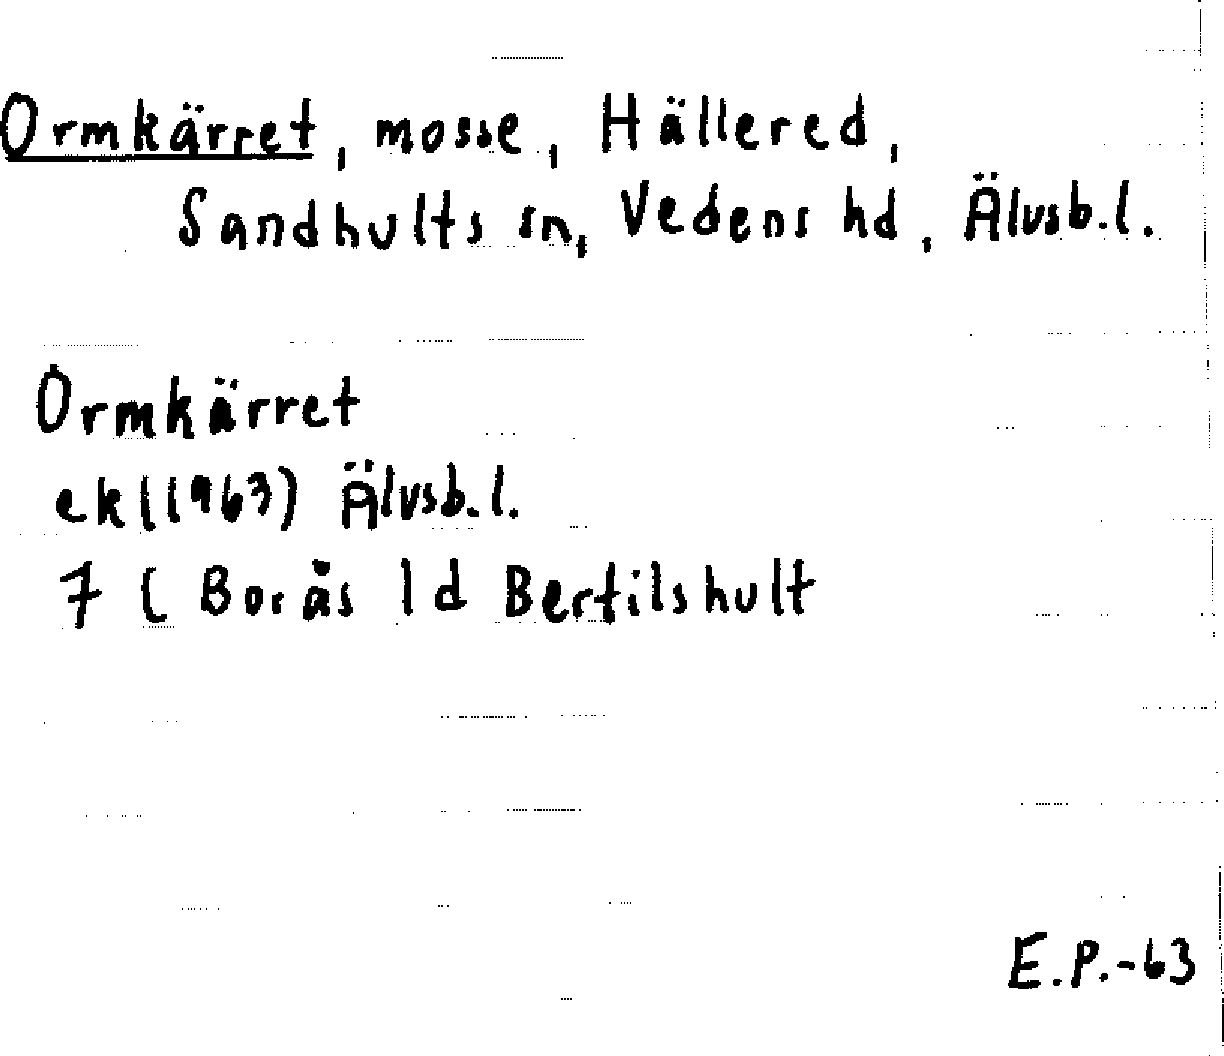 Ormkärret, mosse, Hällered,
Sandhults sn, Vedens hd, Älvsb.l.
Ormkärret
ek (1963) Älvsb.l.
7 C Borås 1d Bertilshult
E.P.-63